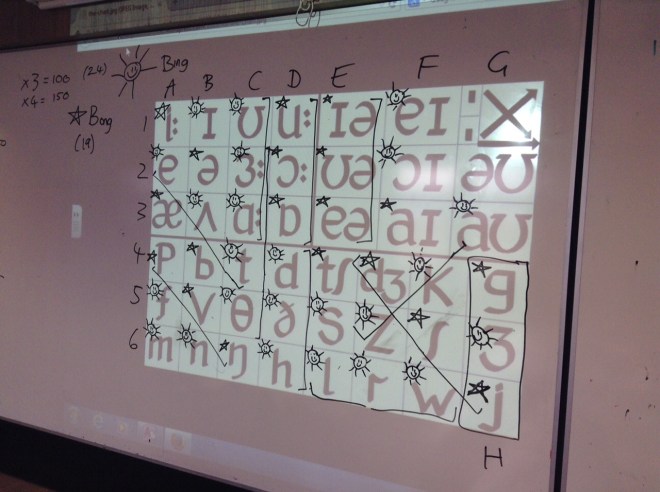 x3 = 100 (24) Bing
x4 = 150
Bong
(19)
A B C D E F G
1 i: ɪ ʊ u: ɪə eɪ
2 e ə ɜ: ɔ: ʊə ɔɪ əʊ
3 æ ʌ ɑ: ɒ eə aɪ aʊ
4 p b t d tʃ dʒ k g
5 f v θ ð s z ʃ ʒ
6 m n ŋ h l r w j
H